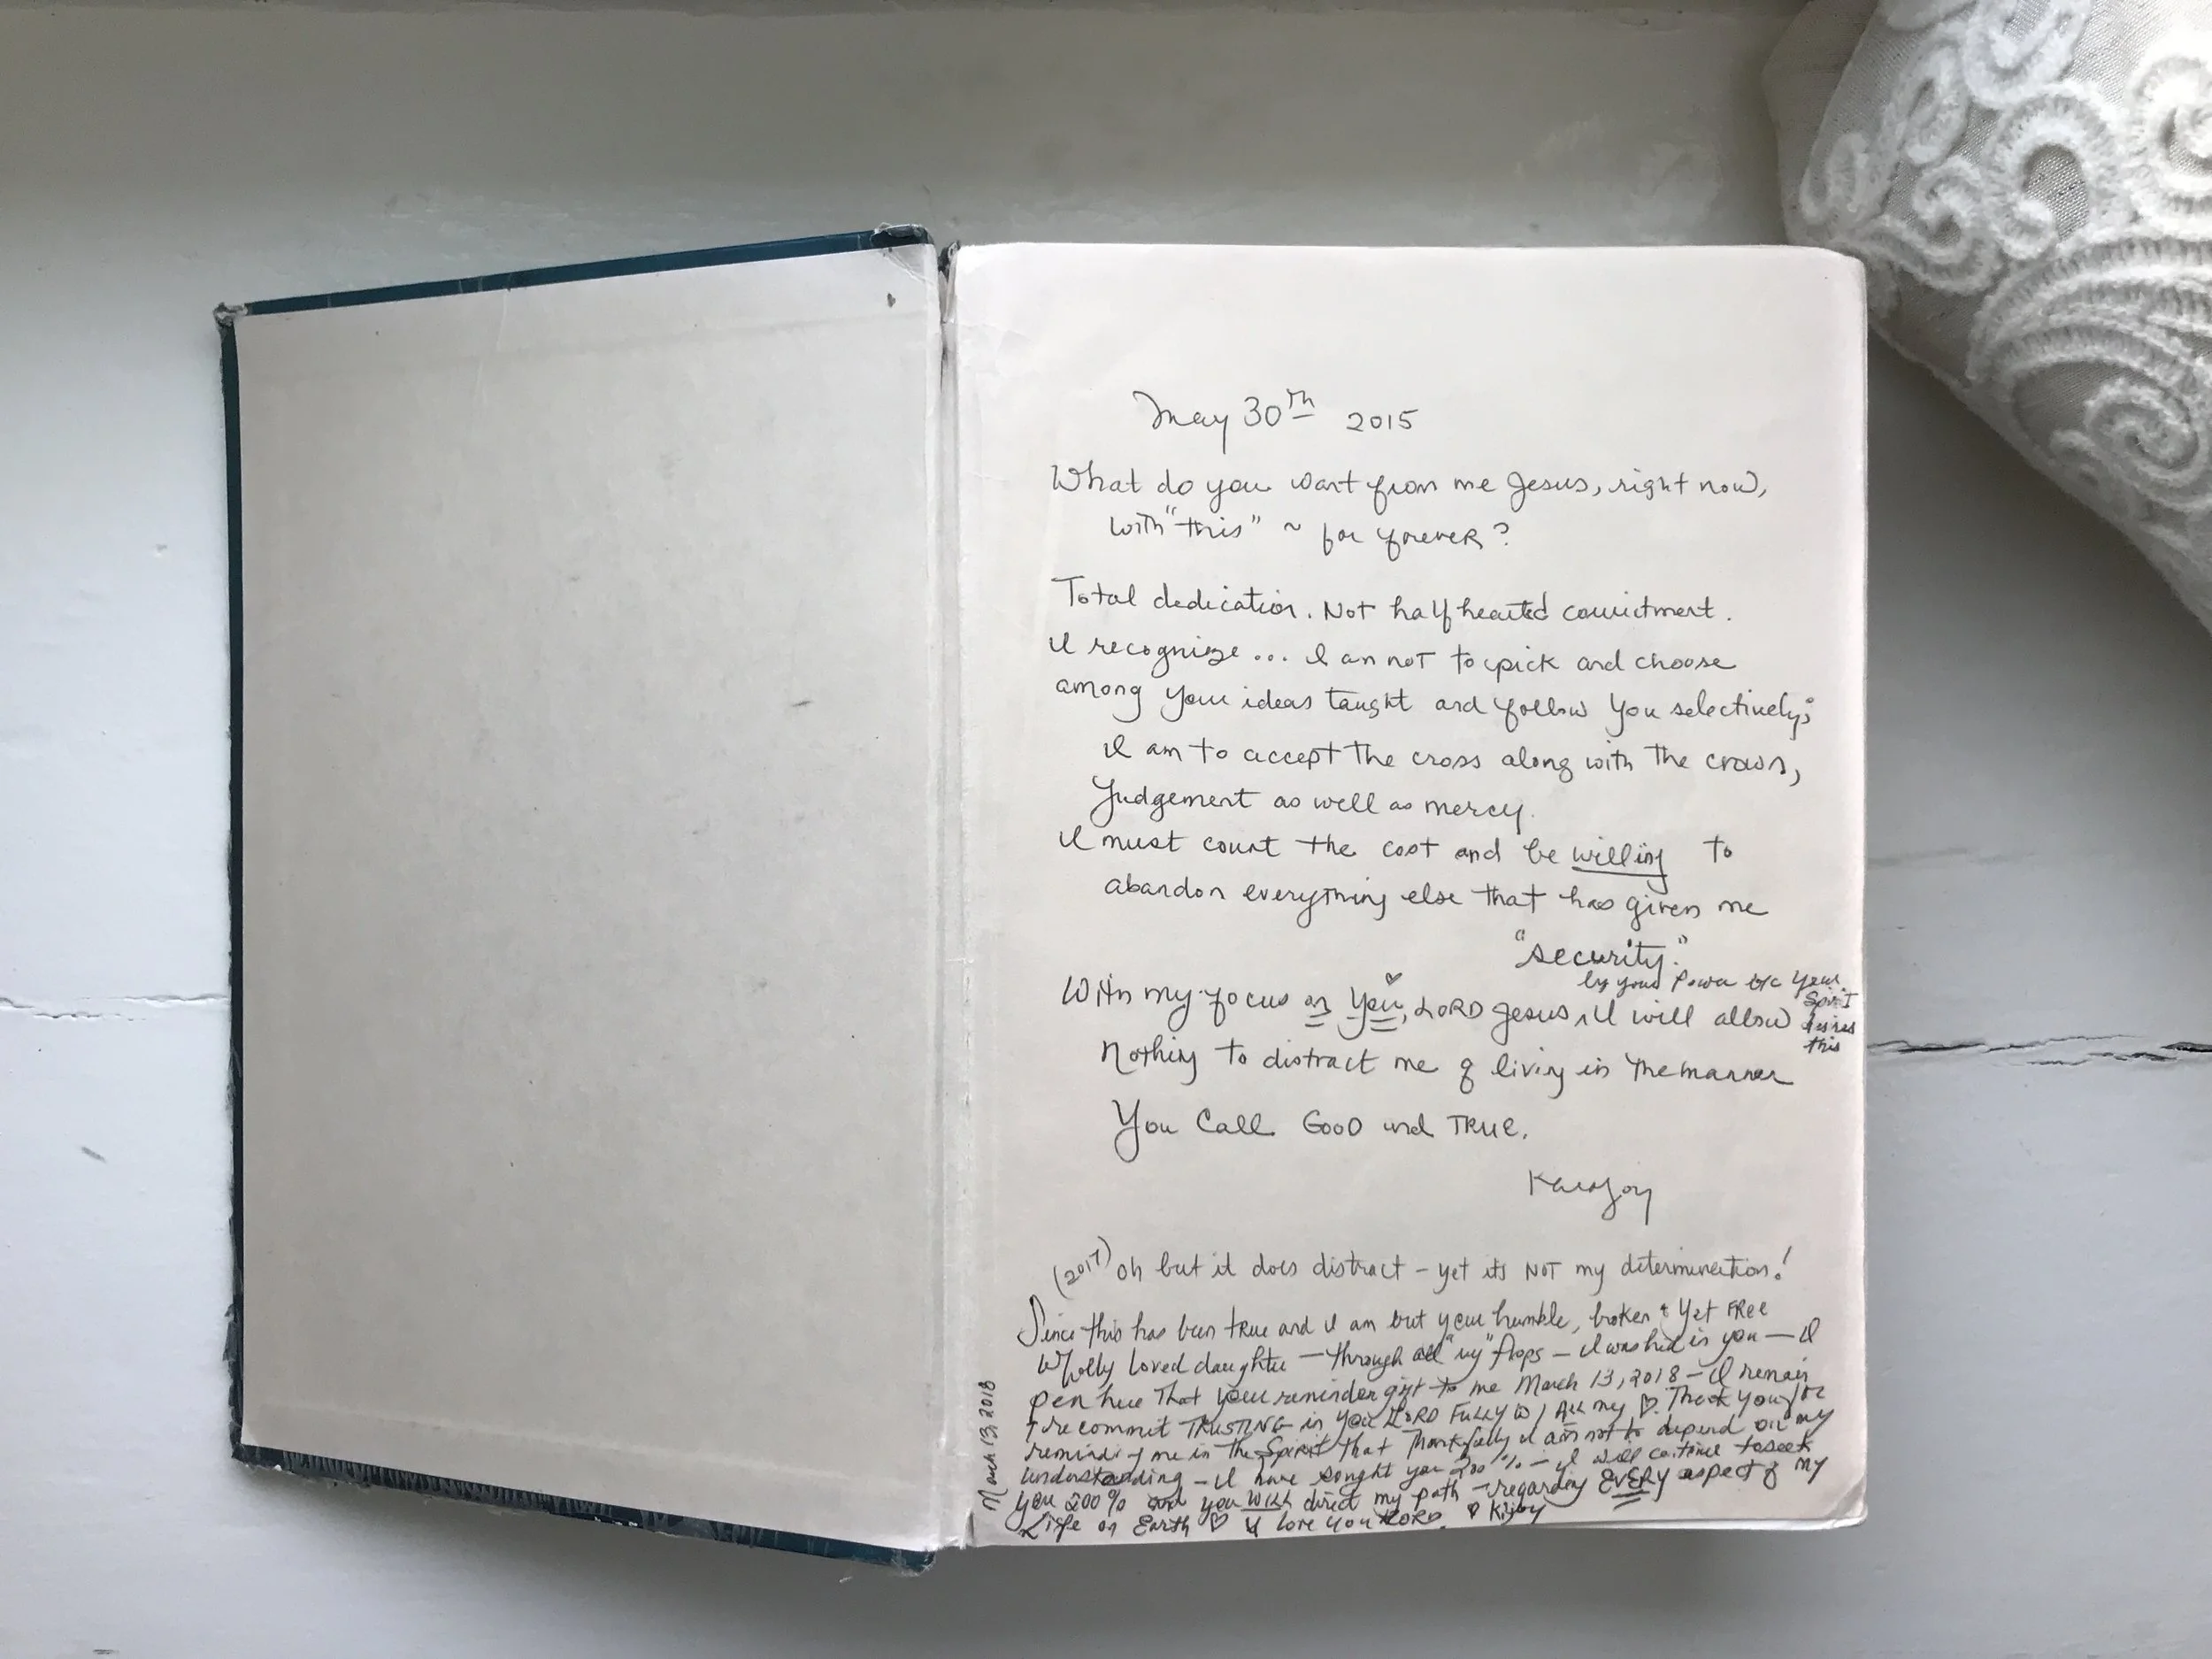 May 30th 2015
What do you want from me Jesus, right now,
with "this" ~ for forever?
Total dedication. Not halfhearted commitment.
I recognize... I am not to pick and choose
among your ideas taught and follow You selectively;
I am to accept the cross along with the crown,
Judgement as well as mercy.
I must count the cost and be willing to
abandon everything else that has given me
"security."
by your Power b/c Your
Spirit
desires
this
With my focus on You, LORD Jesus, I will allow
Nothing to distract me of living in the manner
You Call GOOD and TRUE.
(2017) Oh but it does distract - yet its NOT my determination!
Since this has been TRUE and I am but your humble, broken & yet FREE
Wholly loved daughter - through all "my" flops - I was hid in you - I
pen here That your reminder gift to me March 13, 2018 - I remain
& recommit TRUSTING in You LORD FULLY W/ ALL my ♡. Thank You for
reminding me in the Spirit that Thankfully I am not to depend on my
understanding - I have sought you 200% - I will continue to seek
you 200% and you WILL direct my path - regarding EVERY aspect of my
Life on Earth ♡ I love you LORD. ♡
March 13, 2018